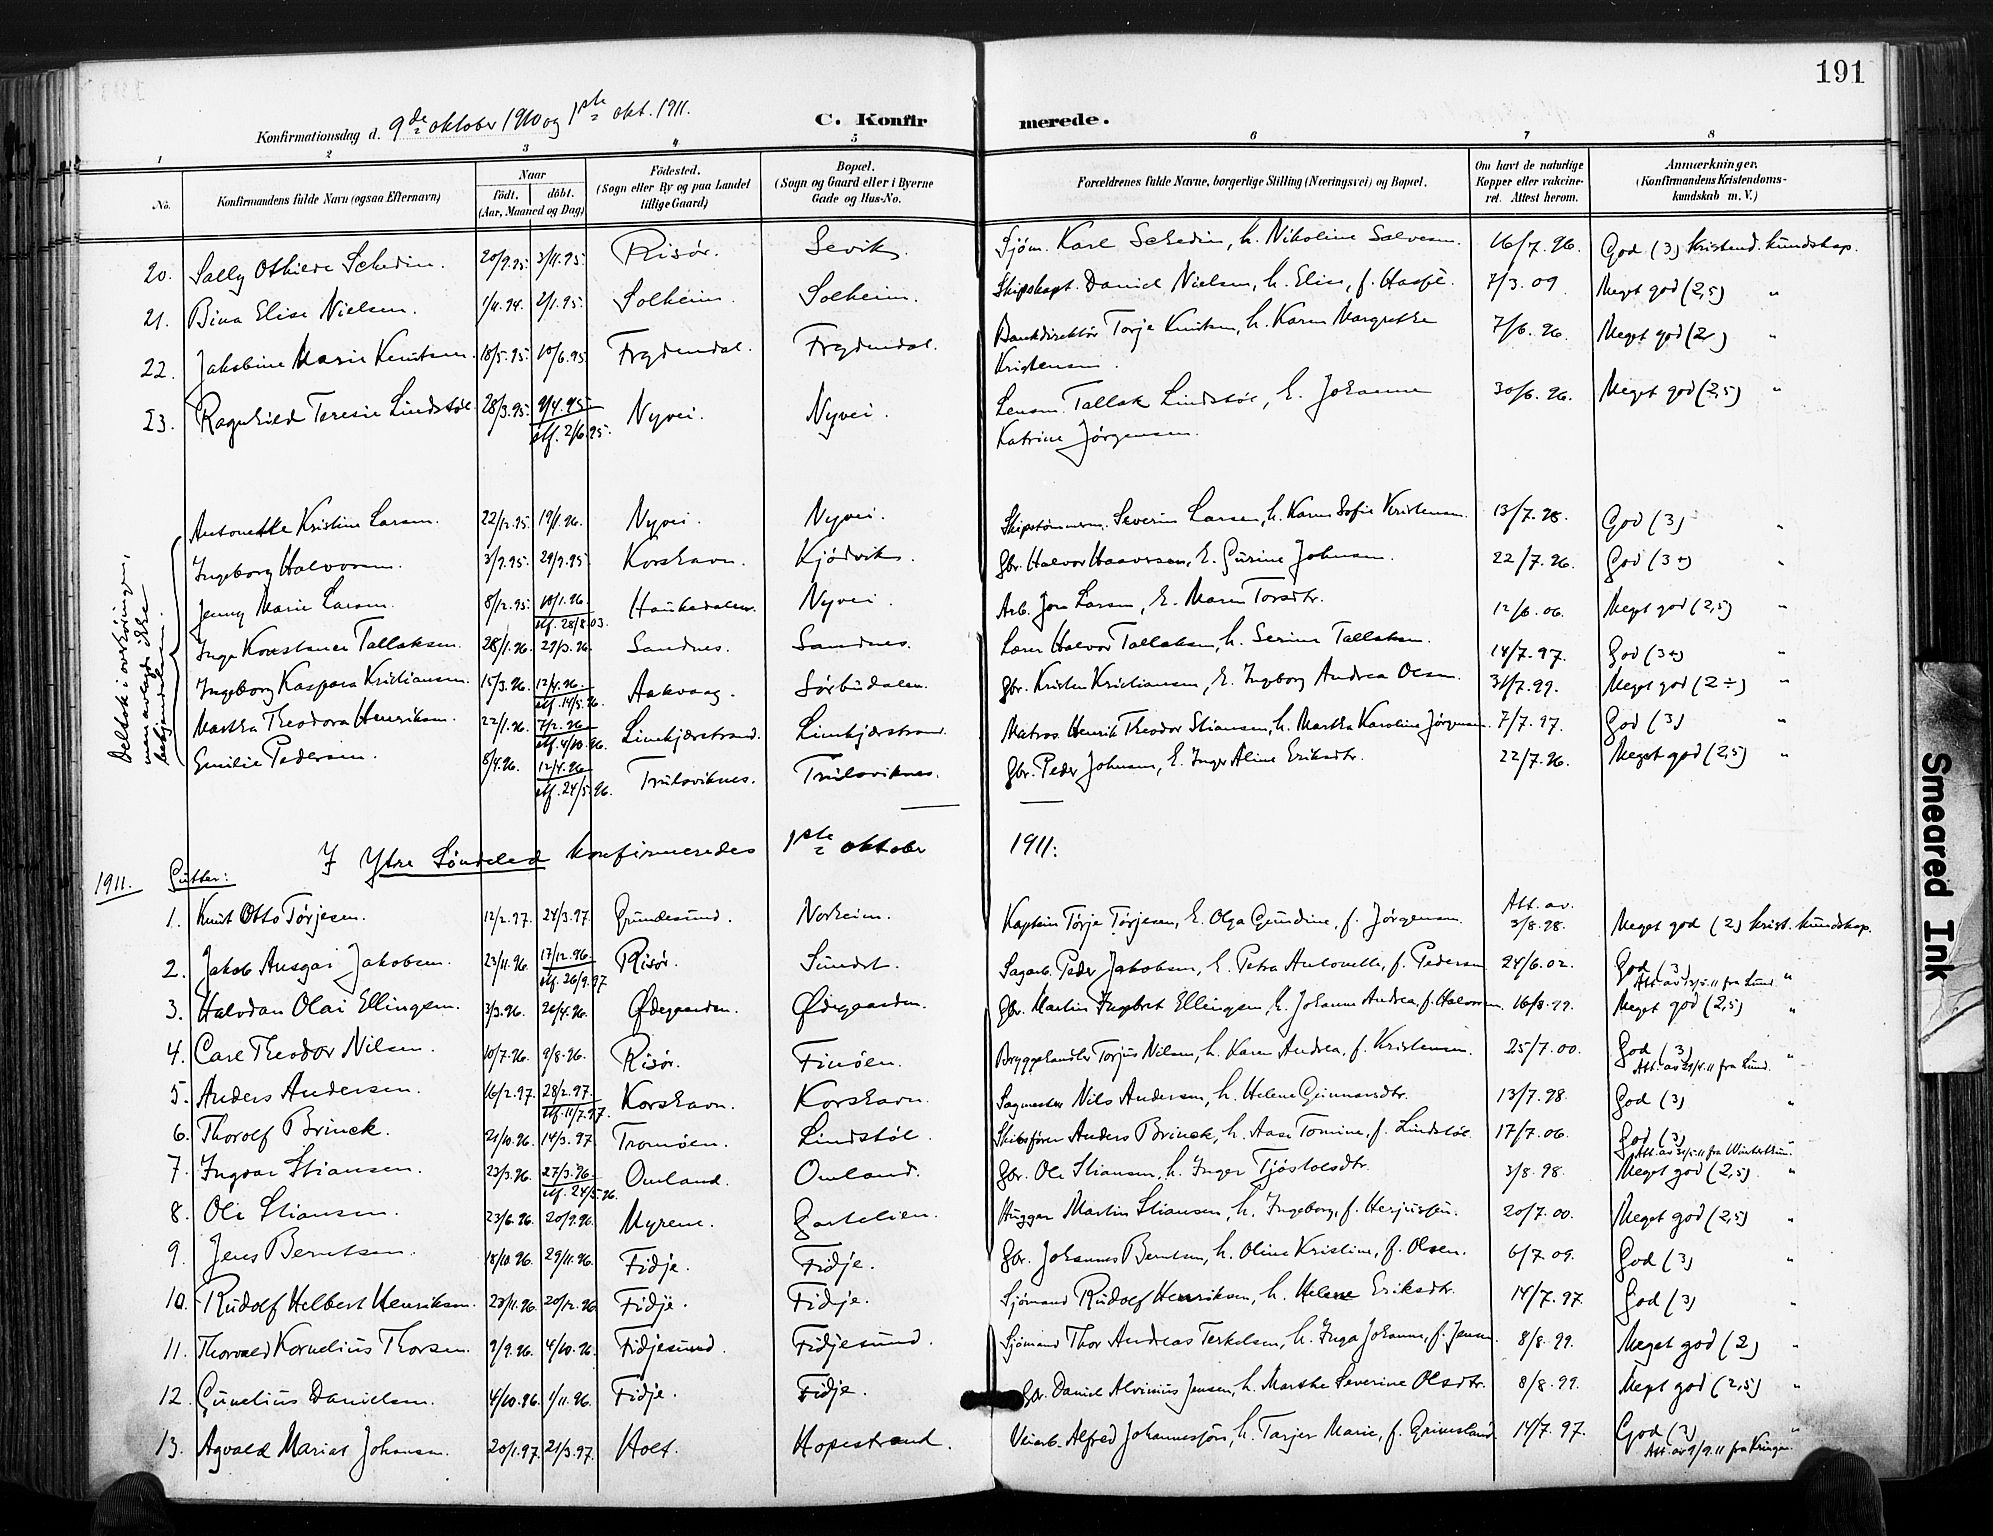 191
Konfirmationsdag d. 9de oktober 1910 og 1ste okt. 1911.
C. Konfirmerede.
1 2 3 4 5 6 7 8
No. Konfirmandens fulde Navn (ogsaa Efternavn) Naar født. døbt. (Aar, Maaned og Dag) Fødested. (Sogn eller By og paa Landet tillige Gaard) Bopæl. (Sogn og Gaard eller i Byerne Gade og Hus-No. Forældrenes fulde Navne, borgerlige Stilling (Næringsvei) og Bopæl. Om havt de naturlige Kopper eller vakcineret. Attest herom. Anmærkninger. (Konfirmandens Kristendomskundskab m. V.)
20. Sally Othiere Schedin. 20/9.95. 3/11.95. Risør. Sevik. Sjøm. Karl Schedin, h. Nikoline Salvesen. 16/7.96. God (3) kristend. kundskap.
21. Bina Elise Nielsen. 1/11.94. 2/1.95. Solheim. Solheim. Skipskapt. Daniel Nielsen, h. Elise, f. 7/3.09 Meget god (2,5) "
22. Jakobine Marie Knutsen. 18/5.95. 10/6.95. Frydendal. Frydendal. Bankdirektør Torje Knutsen, h. Karen Margrethe 7/6.96. Meget god (2) "
Kristensen.
23. Ragnhild Teresie Lindstøl. 28/3.95. 9/4.95. Nyvei. Nyvei. Lensm. Tallak Lindstøl, h. Johanne 30/6.96. Meget god (2,5) "
stf. 2/6.95. Katrine Jørgensen.
Deltok i overhøringen, men avlagde ikke bekjendelsen.
Antonette Kristine Larsen. 22/12.95. 19/1.96. Nyvei. Nyvei. Skipstømmerm. Severin Larsen, h. Karen Sofie Kristensen. 13/7.98. God (3) "
Ingeborg Halvorsen. 3/9.95. 29/9.95. Korshavn. Kjødvik. Gbr. Halvor Haavorsen, h. Gurine Johnsen. 22/7.96. God (3+) "
Jenny Marie Larsen. 8/12.95. 10/1.96. stf. 28/8.03. Haukedalen. Nyvei. Arb. Jon Larsen, h. Maren Torsdtr. 12/6.06. Meget god (2,5) "
Inga Konstance Tallaksen. 28/1.96. 29/3.96. Sandnes. Sandnes. Lærer Halvor Tallaksen, h. Serine Tallaksen. 14/7.97. God (3+) "
Ingeborg Kaspara Kristiansen. 15/3.96. 12/4.96. stf. 14/5.96. Aakvaag. Sørbudalen. Gbr. Kristen Kristiansen, h. Ingeborg Andrea Olsen. 31/7.99. Meget god (2÷) "
Martha Theodora Henriksen. 22/1.96. 7/2.96. stf. 4/10.96. Limkjærstrand. Limkjærstrand. Matros Henrik Theodor Stiansen, h. Martha Karoline Jørgensen. 7/7.97. God (3) "
Emilie Pedersen. 8/4.96. 12/4.96. stf. 24/5.96. Trulsviknes. Trulsviknes. Gbr. Peder Johnsen, h. Inger Aline Eriksdtr. 22/7.96. Meget god (2,5) "
I Ytre Søndeled konfirmeredes 1ste oktober 1911:
1911. Gutter:
1. Knut Otto Tørjesen. 12/2.97. 24/3.97. Grundesund. Norheim. Kaptein Tørje Tørjesen, h. Olga Gundine, f. Jørgensen. Att. av 3/8.98. Meget god (2) krist. kundskap.
2. Jakob Ansgar Jakobsen. 23/11.96. 17/12.96. stf. 26/9.97 Risør. Sundet. Sagarb. Peder Jakobsen, h. Petra Antonette, f. Pedersen 24/6.02. God (3) Att. av 13/5.11 fra Lund. "
3. Halvdan Olai Ellingsen. 3/3.96. 26/4.96. Ødegaarden. Ødegaarden. Gbr. Martin Ingebret Ellingsen, h. Johanne Andrea, f. Halvorsen. 16/8.99. Meget god (2,5) "
4. Carl Theodor Nilsen. 10/7.96. 9/8.96. Risør. Finøen. Bryggehandler Torjus Nilsen, h. Karen Andrea, f. Kristensen. 25/7.00. God (3) Att. av 29/4.11 fra Lund. "
5. Anders Andersen. 16/2.97. 28/2.97 stf. 11/7.97. Korshavn. Korshavn. Sagmester Nils Andersen, h. Helene Gunnarsdtr. 13/7.98. God (3) "
6. Thorolf Brinck. 21/10.96. 14/3.97. Tromøen. Lindstøl. Skibsfører Anders Brinck, h. Aase Tomine, f. Lindstøl. 17/7.06. God (3) "
7. Ingvar Stiansen. 23/3.96. 27/3.96 stf. 24/5.96. Omland. Omland. Gbr. Ole Stiansen, h. Inger Tjøstolsdtr. 3/8.98. Meget god (2,5) "
8. Ole Stiansen. 23/6.96. 20/9.96. Myrene. Garthelien. Hugger Martin Stiansen, h. Ingeborg, f. Herjussen. 20/7.00. Meget god (2,5) "
9. Jens Berntsen. 18/10.96. 29/11.96. Fidje. Fidje. Gbr. Johannes Berntsen, h. Oline Kristine, f. Olsen. 6/7.09. God (3) "
10. Rudolf Helbert Henriksen. 23/11.96. 20/12.96 Fidje. Fidje. Sjømand Rudolf Henriksen, h. Helene Eriksdtr. 14/7.97. God (3) "
11. Thorvald Kornelius Thorsen. 9/9.96. 4/10.96. Fidjesund. Fidjesund. Sjømand Thor Andreas Terkelsen, h. Inga Johanne, f. Jensen. 8/8.99. Meget god (2) "
12. Gunelius Danielsen. 4/10.96. 1/11.96. Fidje. Fidje. Gbr. Daniel Alvinius Jensen, h. Marthe Severine Olsdtr. 8/8.99. Meget god (2,5) "
13. Agvald Marius Johansen. 20/1.97. 21/3.97. Holt. Hopestrand. Veiarb. Alfred Johannesjøn, h. Tarjer Marie, f. Grimsland. 14/7.97. God (3) Att. av 9/9.11 fra Kringen. "
Smeared Ink